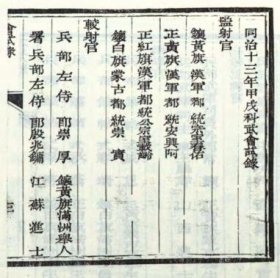 同治十三年甲戌科武會試錄
監射官
鑲黃旗漢軍都統宗室春佑
正黃旗漢軍都統安興阿
正紅旗漢軍都統公宗室載
鑲白旗蒙古都統崇實
較射官
兵部左侍郎崇厚 鑲黃旗滿洲舉人
署兵部左侍郎殷兆鏞 江蘇進士
會試錄
三